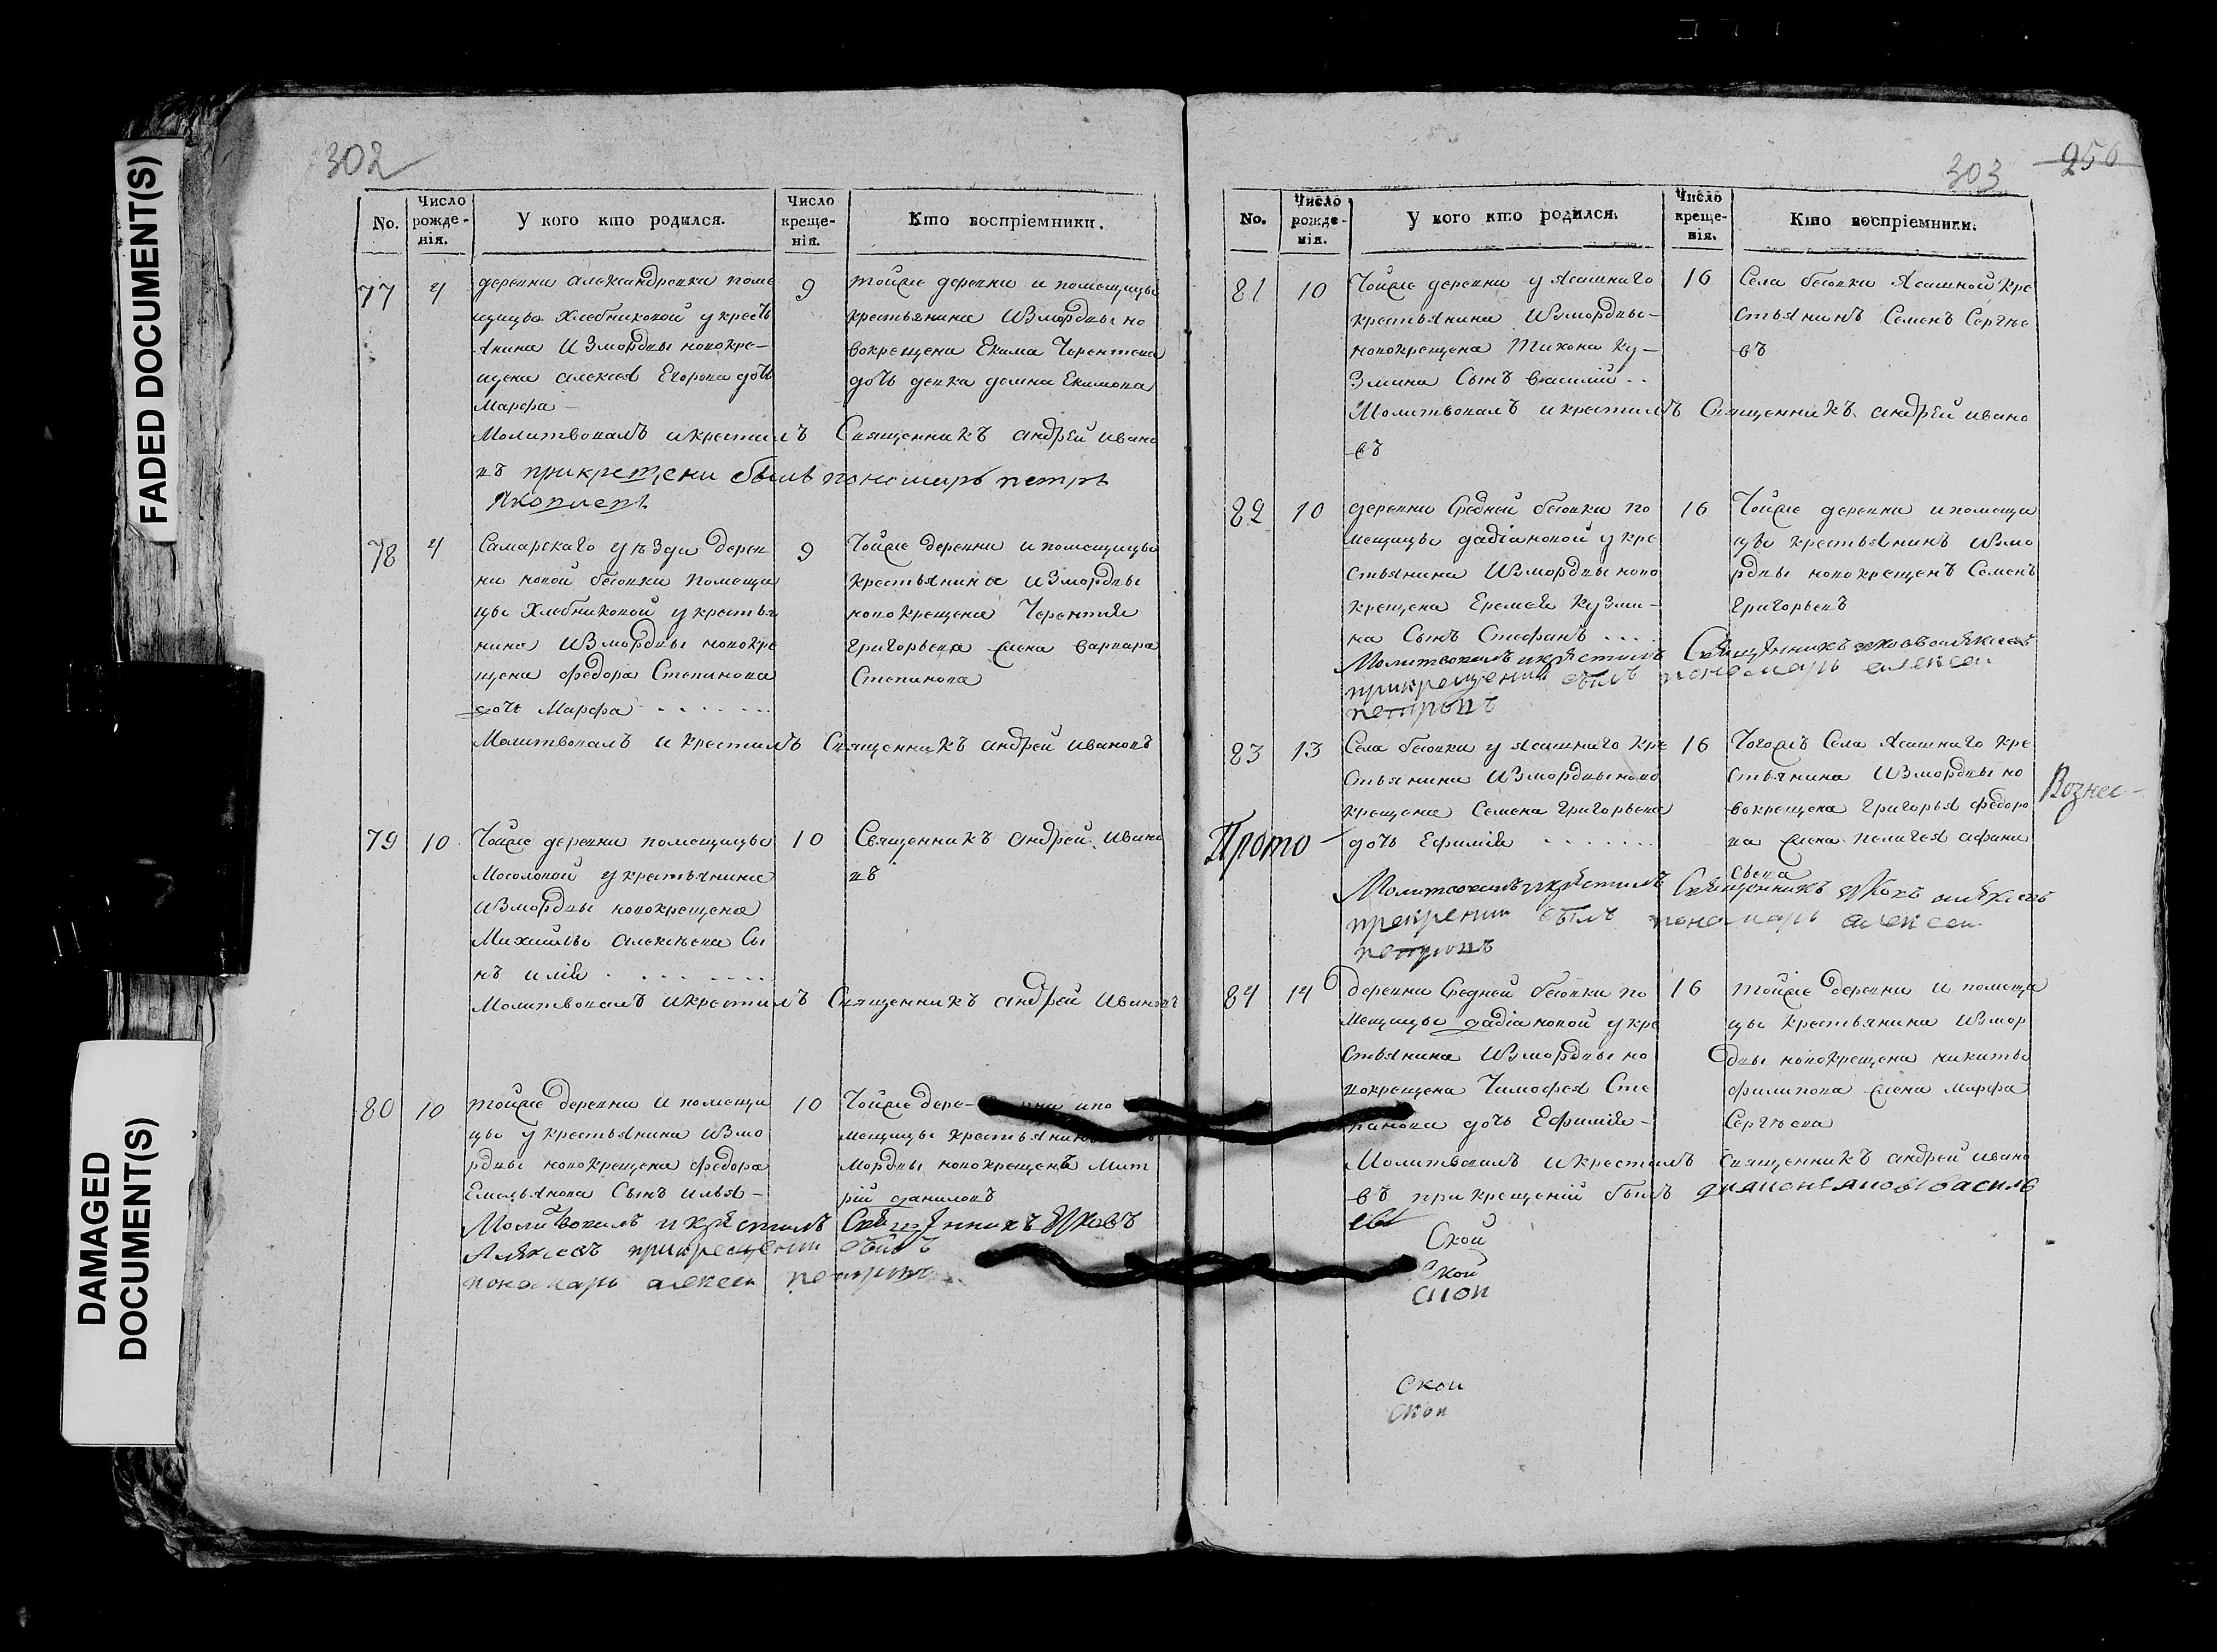 FADED DOCUMENT(S)
DAMAGED
DOCUMENT(S)
302
No.
Число рожде-нія.
У кого кто родился.
Число креще-нія.
Кто воспріемники.
77
4
деревни александровки поме
щицы Хлебниковой у крестъ
янина Измордвы новокре-
щена алексея Егорова дочь
Марфа
9
тойже деревни и помещицы
крестьянина Измордвы но
вокрещена Екима Терентева
дочь девка домна Екимова
Молитвовалъ икрестилъ Священникъ андрей ивано
въ прикрещени былъ пономарь петръ
Яковлевъ
78
4
Самарскаго уѣзда дерев
ни новой бесовки помещи
цы Хлебниковой укрестья
нина Измордвы новокре
щена федора Степанова
дочь Марфа
9
Тойже деревни и помещицы
крестьянина измордвы
новокрещена Терентия
григорьева жена варвара
Степанова
Молитвовалъ и крестилъ Священникъ андрей ивановъ
79
10
Тойже деревни помещицы
Мосоловой укрестьянина
Измордвы новокрещена
Михайлы алексѣева Сы
нъ илия
10
Священникъ андрей ивано
въ
Молитвовалъ икрестилъ Священникъ андрей ивановъ
80
10
тойже деревни и помещи
цы укрестьянина Измо
рдвы новокрещена федора
Емельянова Сынъ илья-
10
Тойже дере- ипо
мещицы крестьянинъ
мордвы новокрещенъ Мит
рій даниловъ
Молитвовалъ икрестилъ Священникъ Яковъ
Алексевъ прикрещении былъ
пономарь алексеи петровъ
303
256
No.
Число рожде-нія.
У кого кто родился.
Число креще-нія.
Кто воспріемники.
81
10
Тойже деревни у Ясашнаго
крестьянина Измордвы-
новокрещена Тихона Ку-
змина Сынъ василий
16
Села бесовки Ясашной кре
стьянинъ Семенъ Сергѣе
въ
Молитвовалъ икрестилъ Священникъ андрей ивано
въ
82
10
деревни Средней бесовки по
мещицы дадіановой укре
стьянина Измордвы ново
крещена Еремея Кузми-
на Сынъ Стефанъ
16
Тойже деревни ипомещи
цы крестьянинъ измо
рдвы новокрещенъ Семенъ
григорьевъ
Молитвовалъ икрестилъ Священникъ яковъ алексевъ
прикрещении былъ пономарь алексеи
петровъ
83
13
Села бесовки у ясашнаго кре
стьянина Измордвы ново
крещена Семена григорьева
дочь Ефимия
16
Тогожъ Села Ясашнаго кре
стьянина Измордвы но
вокрещена григорья федоро
ва жена пелагея афана
сьева
Вознес-
Прото-
Молитвовалъ икрестилъ Священникъ Яковъ алексевъ
прекрении былъ пономарь алексеи
петровъ
84
14
деревни Средней бесовки по
мещицы дадіановой укре
стьянина Измордвы но
вокрещена Тимофея Сте
панова дочь Ефимия-
16
тойже деревни и помещи
цы крестьянина Измор
двы новокрещена никиты
филипова жена марфа
Сергѣева
Молитвовалъ икрестилъ священникъ андрей ивано
въ при крещеній былъ
Ской
Ской
Ской
Ской